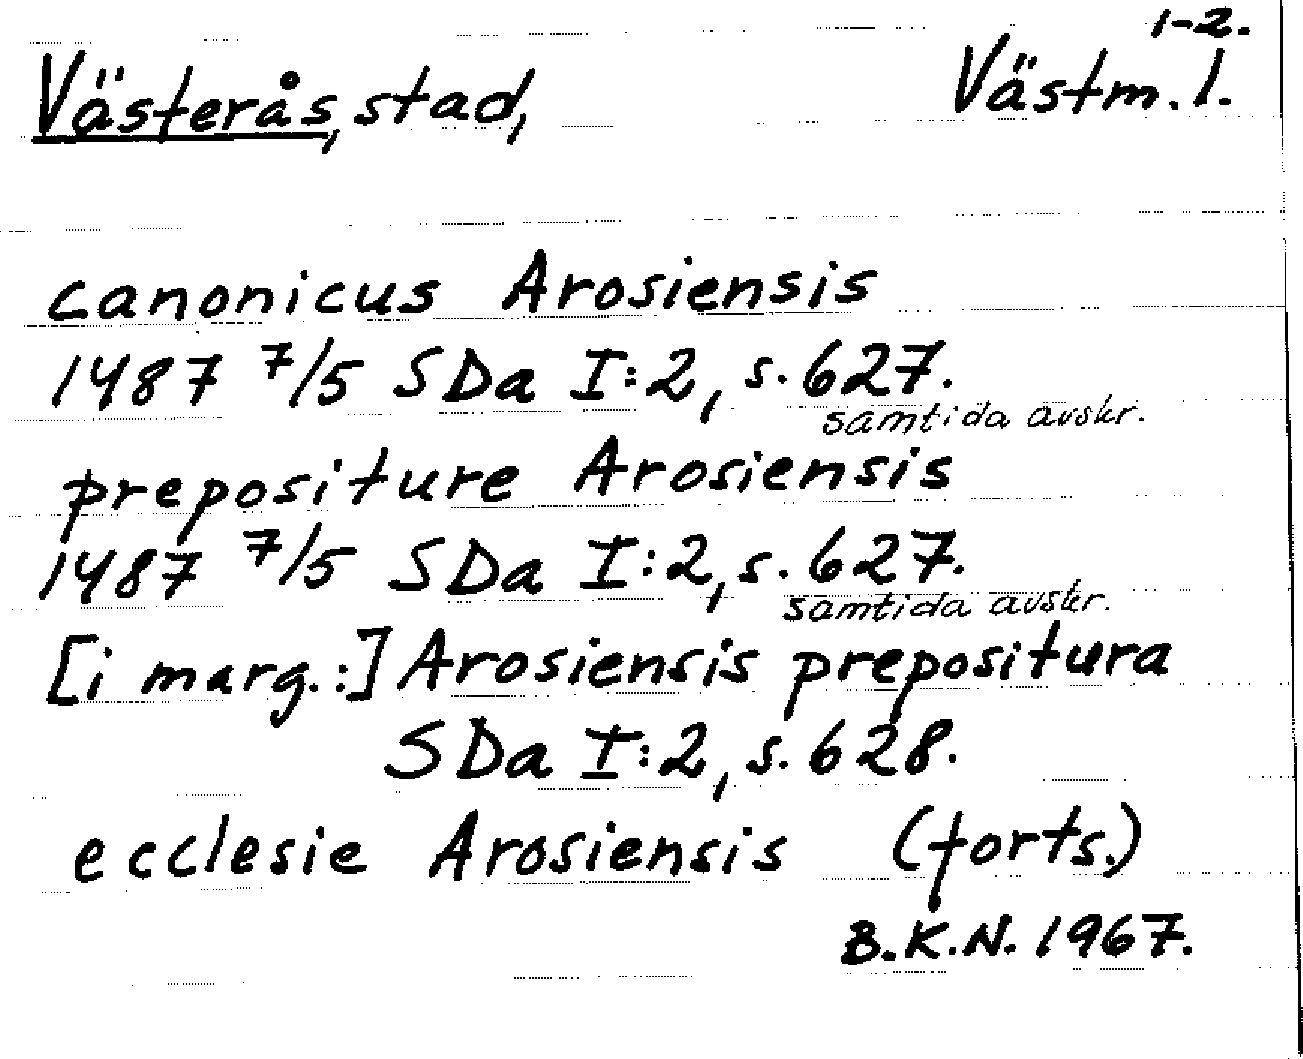 1-2.
Västerås, stad, Västm. l.
canonicus Arosiensis
1487 7/5 SDa I:2, s. 627.
samtida avskr.
prepositure Arosiensis
1487 7/5 SDa I:2, s. 627.
samtida avskr.
[i marg.:] Arosiensis prepositura
SDa I:2, s. 628.
ecclesie Arosiensis (forts.)
B.K.N. 1967.